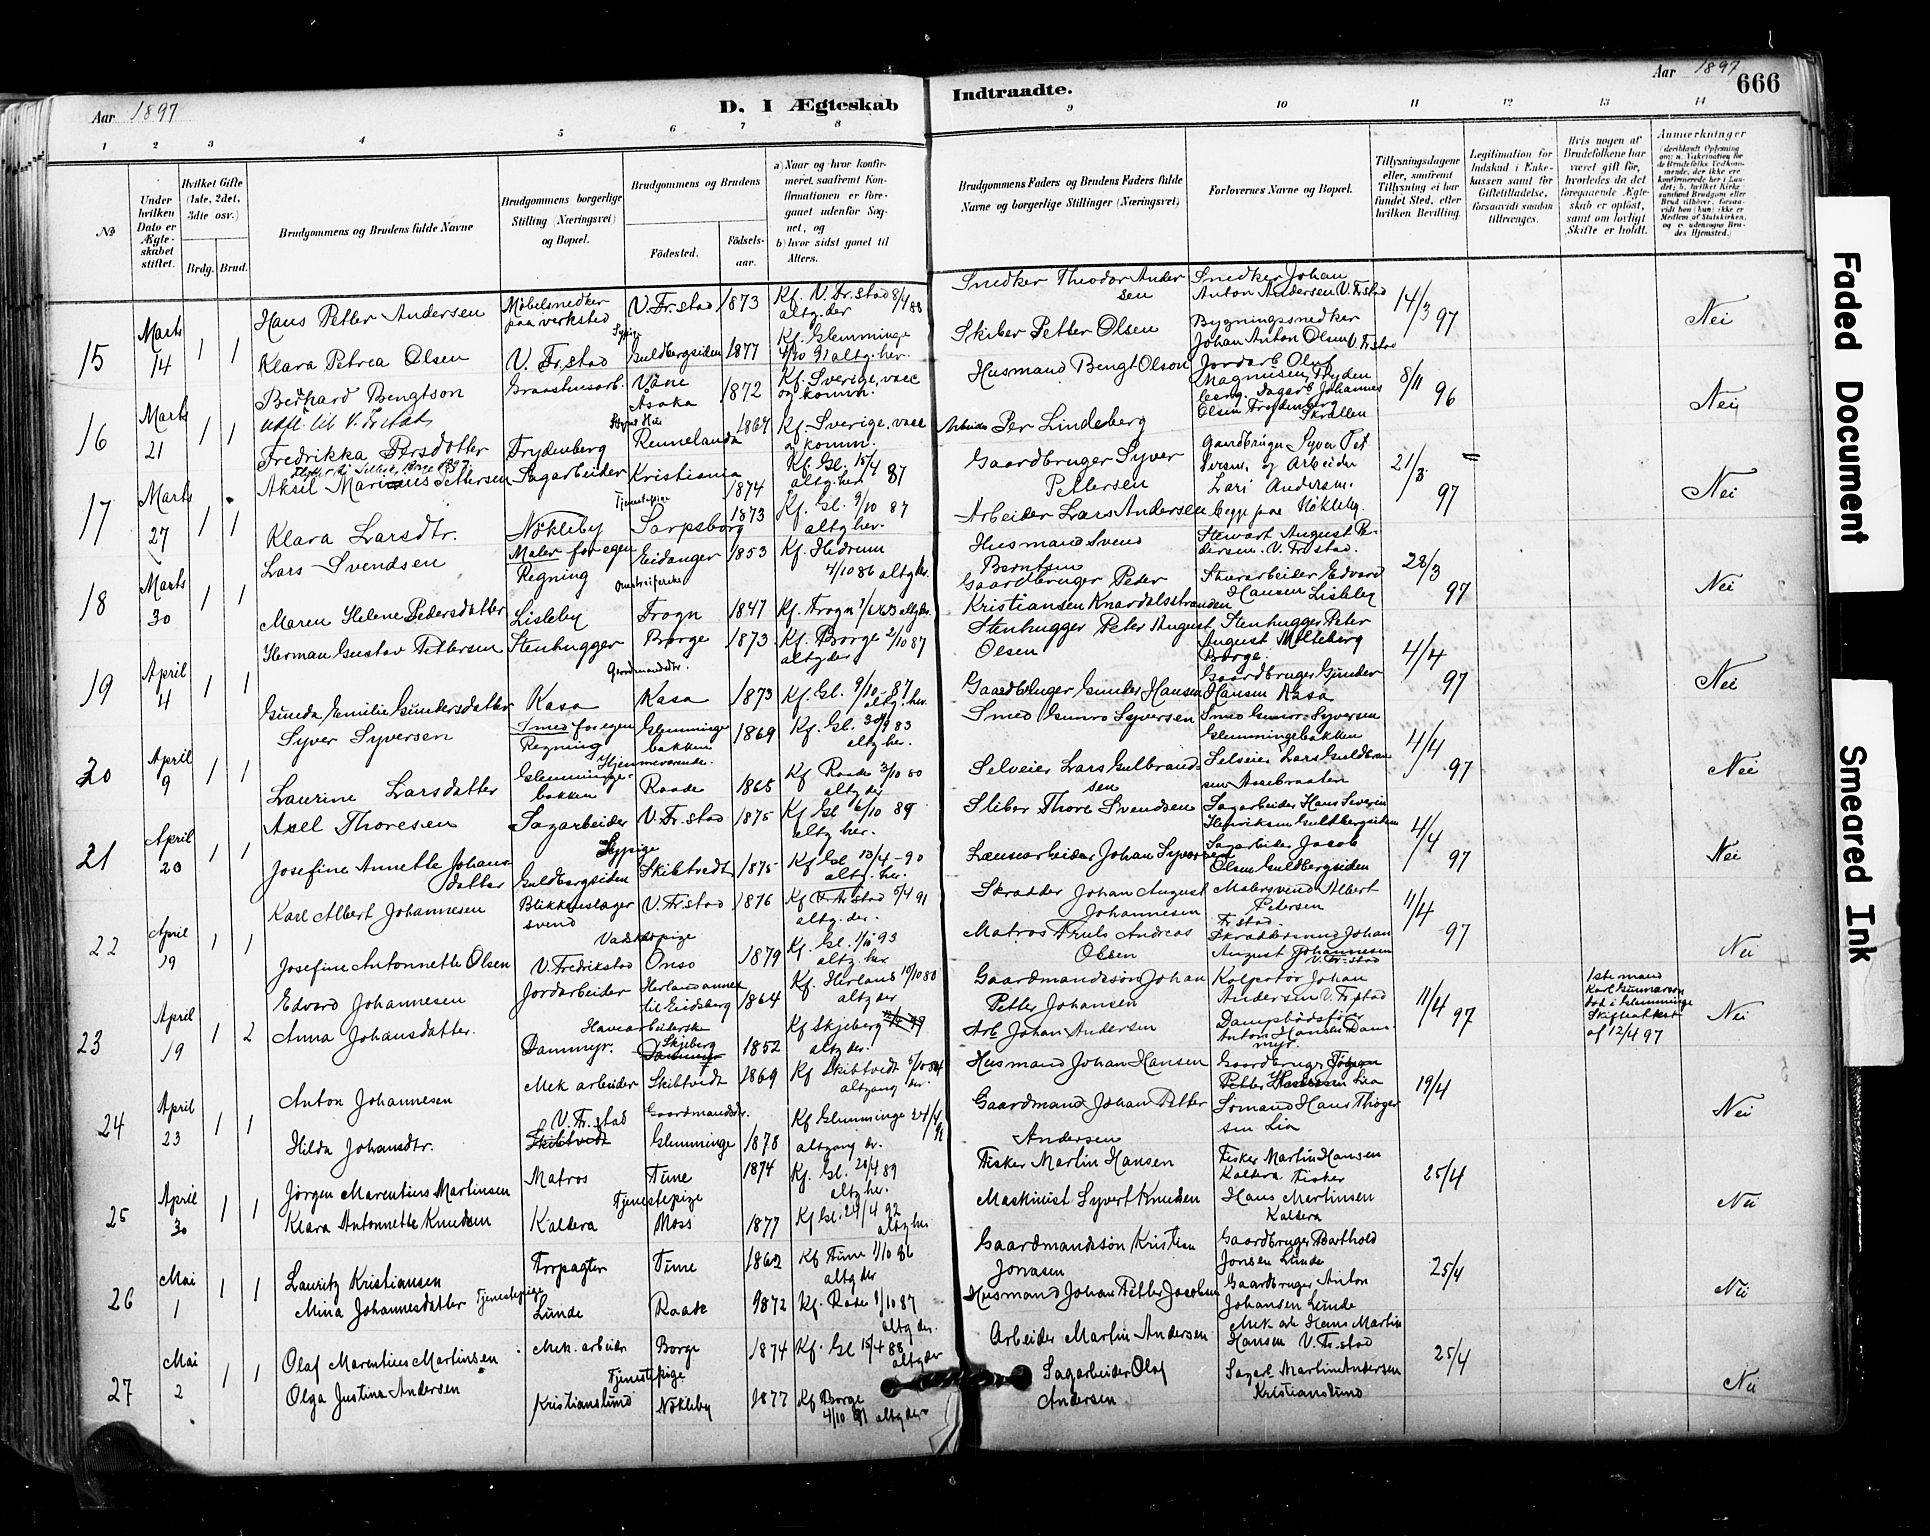 Aar 1897
D. I Ægteskab
Indtraadte.
Aar 1897
666
1 2 3 4 5 6 7 8
9 10 11 12 13 14
№
Under hvilken Dato er Ægteskabet stiftet.
Hvilket Gifte (1ste, 2det, 3die osv.)
Brdg. Brud.
Brudgommens og Brudens fulde Navne
Brudgommens borgerlige Stilling (Næringsvei) og Bopæl.
Brudgommens og Brudens
Fødested.
Fødsels-aar.
a) Naar og hvor konfirmeret, saafremt Konfirmationen er foregaaet udenfor Sognet, og
b) hvor sidst gaaet til Alters.
Brudgommens Faders og Brudens Faders fulde Navne og borgerlige Stillinger (Næringsvei)
Forlovernes Navne og Bopæl.
Tillysningsdagene eller, saafremt Tillysning ei har fundet Sted, efter hvilken Bevilling.
Legitimation for Indskud i Enkekassen samt for Giftetilladelse, forsaavidt saadan tiltrænges.
Hvis nogen af Brudefolkene har været gift før, hvorledes da det foregaaende Ægteskab er opløst, samt om lovligt Skifte er holdt.
Anmærkninger
15 Marts 14 1 1
Hans Petter Andersen Møbelsnedker paa verksted V. Fr.stad 1873 Kf. V. Fr.stad 8/4 88 altg. der
Snedker Theodor Andersen Snedker Johan Anton Andersen V. Fr.stad 14/3 97 Nei
Klara Petrea Olsen V. Fr.stad Sypige Guldbergsiden 1877 Kf. Glemminge 4/10 91 altg. her.
Skiber Petter Olsen Bygningssnedker Johan Anton Olsen V. Fr.stad
16 Marts 21 1 1
Bernhard Bengtson Graastensarb. Väne Åsaka 1872 Kf. Sverige, vacc og komm.
udfl. til V. Fr.stad
Husmand Bengt Olson Jordarb. Oluf Magnusen Frydenberg. Sagarb. Johannes Olsen Frydenberg 8/11 96 Nei
Fredrikka Persdatter Frydenberg Rennelanda 1867 Kf. Sverige, vacc og komm.
Arbeider Per Lindeberg
17 Marts 27 1 1
Aksil Marinius Pettersen Sagarbeider Kristiania 1874 Kf. Gl. 15/4 87 altg. her
Gaardbruger Syver Pettersen Gaardbruger Syver Pettersen og Arbeider Lars Andersen. begge paa Nökleby. 21/3 97 Nei
Klara Larsdtr. Nökleby Tjenestepige Sarpsborg 1873 Kf. Gl. 9/10 87 altg her.
Arbeider Lars Andersen
18 Marts 30 1 1
Lars Svendsen Maler for egen Regning Eidanger 1853 Kf. Hedrum 4/10 86 altg her.
Husmand Svend Berntsen Stewart August Pedersen. V. Fr.stad. 28/3 97 Nei
Maren Helene Pedersdatter Lisleby Frogn 1847 Kf. Frogn altg her.
Gaardbruger Peder Kristiansen Knardalsstranden Stenarbeider Edvard Hansen Lisleby
19 April 4 1 1
Herman Gustav Pettersen Stenhugger Borge 1873 Kf. Borge 2/10 87 altg der
Stenhugger Peter August Olsen Stenhugger Peter August Milleberg Borge. 4/4 97 Nei
Gunda Emilie Gundersdatter Kasa Gaardmandsdtr. Kasa 1873 Kf. Gl. 9/10-87 altg. her.
Gaardbruger Gunder Hansen Gaardbruger Gunder Hansen Kasa
20 April 9 1 1
Syver Syversen Smed for egen Regning Glemminge bakken 1869 Kf. Gl. 30/9 83 altg her.
Smed Gunro Syversen Smed Gunro Syversen Glemmingebakken 4/4 97 Nei
Laurine Larsdatter Glemminge bakken Hjemmeværende. Raade 1865 Kf Raade 3/10 80 altg der
Selveier Lars Gulbrandsen Selveier Lars Guldbrandsen Aasebraaten
21 April 20 1 1
Axel Thoresen Sagarbeider V. Fr.stad 1875 Kf Gl 6/10 89 altg her.
Skiber Thore Svendsen Sagarbeider Hans Severin Henriksen Guldbergsiden 4/4 97 Nei
Josefine Annette Johansdatter Guldbergsiden Sypige Skibtvedt 1875 Kf Gl. 13/4-90 altg. her.
Lænsearbeider Johan Syversen Sagarbeider Jacob Olsen Guldbergsiden
22 April 19 1 1
Karl Albert Johannesen Blikkenslager svend V. Fr.stad 1876 Kf V. Fr.stad 5/4 91 altg. der.
Skradder Johan August Johannesen Malersvend Albert Petersen Fr.stad. 11/4 97 Nei
Josefine Antonnette Olsen V. Fredrikstad Vadskepige Onsø 1879 Kf. Gl. 93 altg. her
Matros Truls Andreas Olsen Skraddersvend Johan August Johannesen V. Fr.stad
23 April 19 1 2
Edvard Johannesen Jordarbeider Herland annex til Eidsberg 1864 Kf. Herland 10/10 80 altg der
Gaardmandssøn Johan Petter Johansen Kolportør Johan Andersen V. Fr.stad 11/4 97
1ste mand Karl Gunnarson död i Glemminge Skifteattest af 12/4 97 Nei
Anna Johansdatter. Dammyr. Havearbeiderske Skjeberg 1852 Kf Skjeberg altg der.
Arb. Johan Andersen Dampbaadsfører Anton Hansen Dammyr.
24 April 23 1 1
Anton Johannesen Mek arbeider Skibtvedt 1869 Kf Skibtvedt 5/10 84 altgang der.
Husmand Johan Hansen Gaardbruger Petter Hansen Lia 19/4 Nei
Hilda Johansdtr. V. Fr. stad Skibtvedt Gaardmandsdtr. Glemminge 1878 Kf Glemminge 24/4 altgang der.
Gaardmand Johan Petter Andersen Sömand Hans Thøgersen Lia
25 April 30 1 1
Jörgen Marentius Martinsen Matros Tune 1874 Kf. Gl. 28/4 89 altg her.
Fisker Martin Hansen Fisker Martin Hansen Kaldera Fisker 25/4 Nei
Klara Antonnette Knudsen Kaldera Tjenestepige Moss 1877 Kf Gl. 24/4 92 altg her
Maskinist Syvert Knudsen Hans Martinsen Kaldera
26 Mai 1 1 1
Lauritz Kristiansen Forpagter Tune 1862 Kf Tune 1/10 86 altg der
Gaardmandssön Kristian Jonasen Gaardbruger Barthold Jonsen Lunde 25/4 Nei
Mina Johannesdatter Tjenestepige Lunde Raade 9872 Kf. Rade 9/10 87 altg der.
Husmand Johan Petter Jacobsen Gaardbruger Anton Johansen Lunde
27 Mai 2 1 1
Olaf Marentius Martinsen Mek. arbeider Borge 1874 Kf. Gl 15/4 88 altg der
Arbeider Martin Andersen Mek arb Hans Martin Hansen V. Fr.stad 25/4 Nei
Olga Justina Andersen Kristianslund Tjenestepige Nökleby 1877 Kf Borge 4/10 91 altg der
Sagarbeider Olaf Andersen Sagarb. Martin Andersen Kristianslund
Faded Document
Smeared Ink